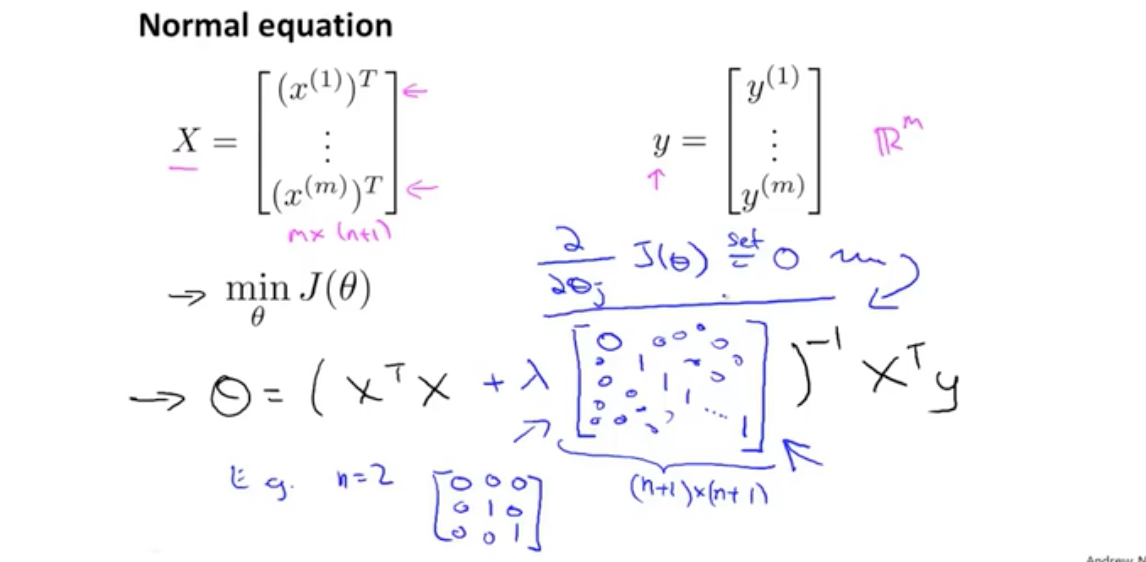 Normal equation
X = [ (x^(1))^T ⋮ (x^(m))^T ] ← ←
m × (n+1)
y = [ y^(1) ⋮ y^(m) ] ℝ^m
↑
∂/∂θ_j J(θ) set = 0
→ min_θ J(θ)
→ θ = ( X^T X + λ [ 0 0 0 0 0 0 1 0 0 1 0 0 1 0 0 0 ... 1 ] )^-1 X^T y
(n+1)×(n+1)
E.g. n=2
0 0 0
0 1 0
0 0 1